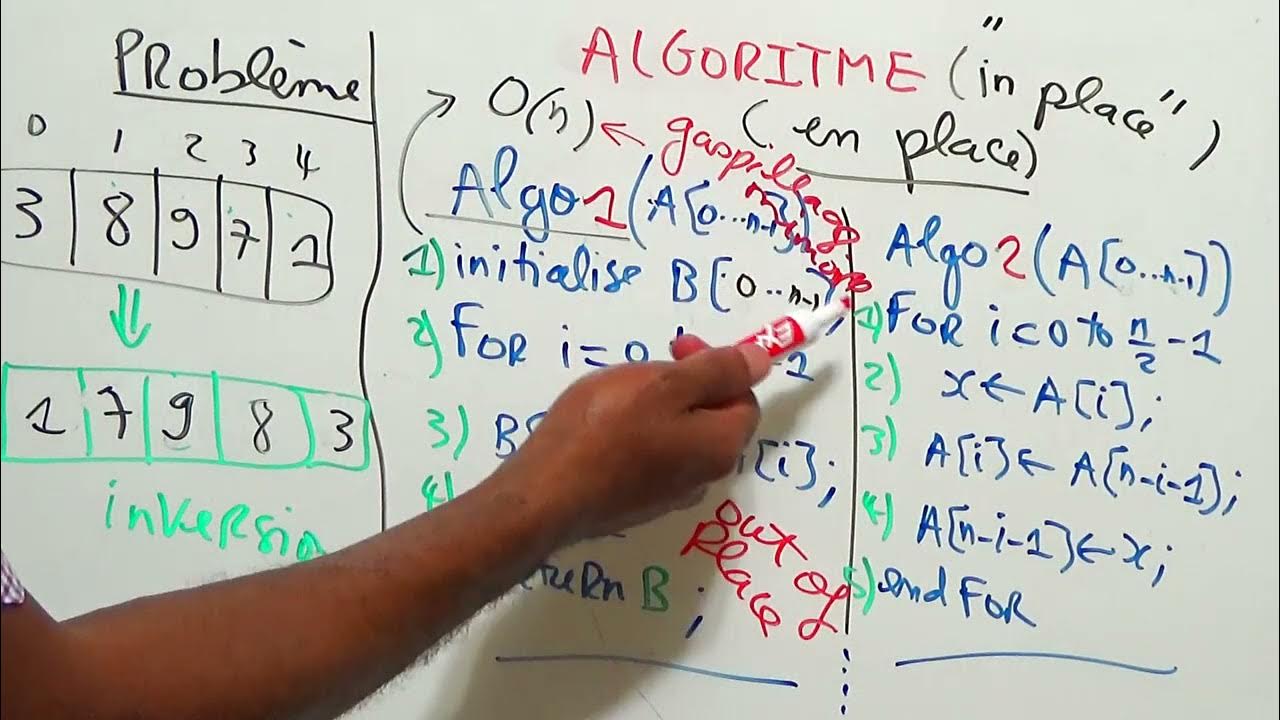 Problème
0 1 2 3 4
3 8 9 7 1
1 7 9 8 3
inversio
ALGORITME ("in place")
(en place)
O(n) ← gaspillage
Algo1(A[0...n-1])
1) initialise B[0..n-1];
2) FOR i=0
-1
3) B
[i];
4)
return B;
out of
place
Algo2(A[0...n-1])
1) FOR i=0 to n/2 -1
2) x ← A[i];
3) A[i] ← A[n-i-1];
4) A[n-i-1] ← x;
5) end FOR